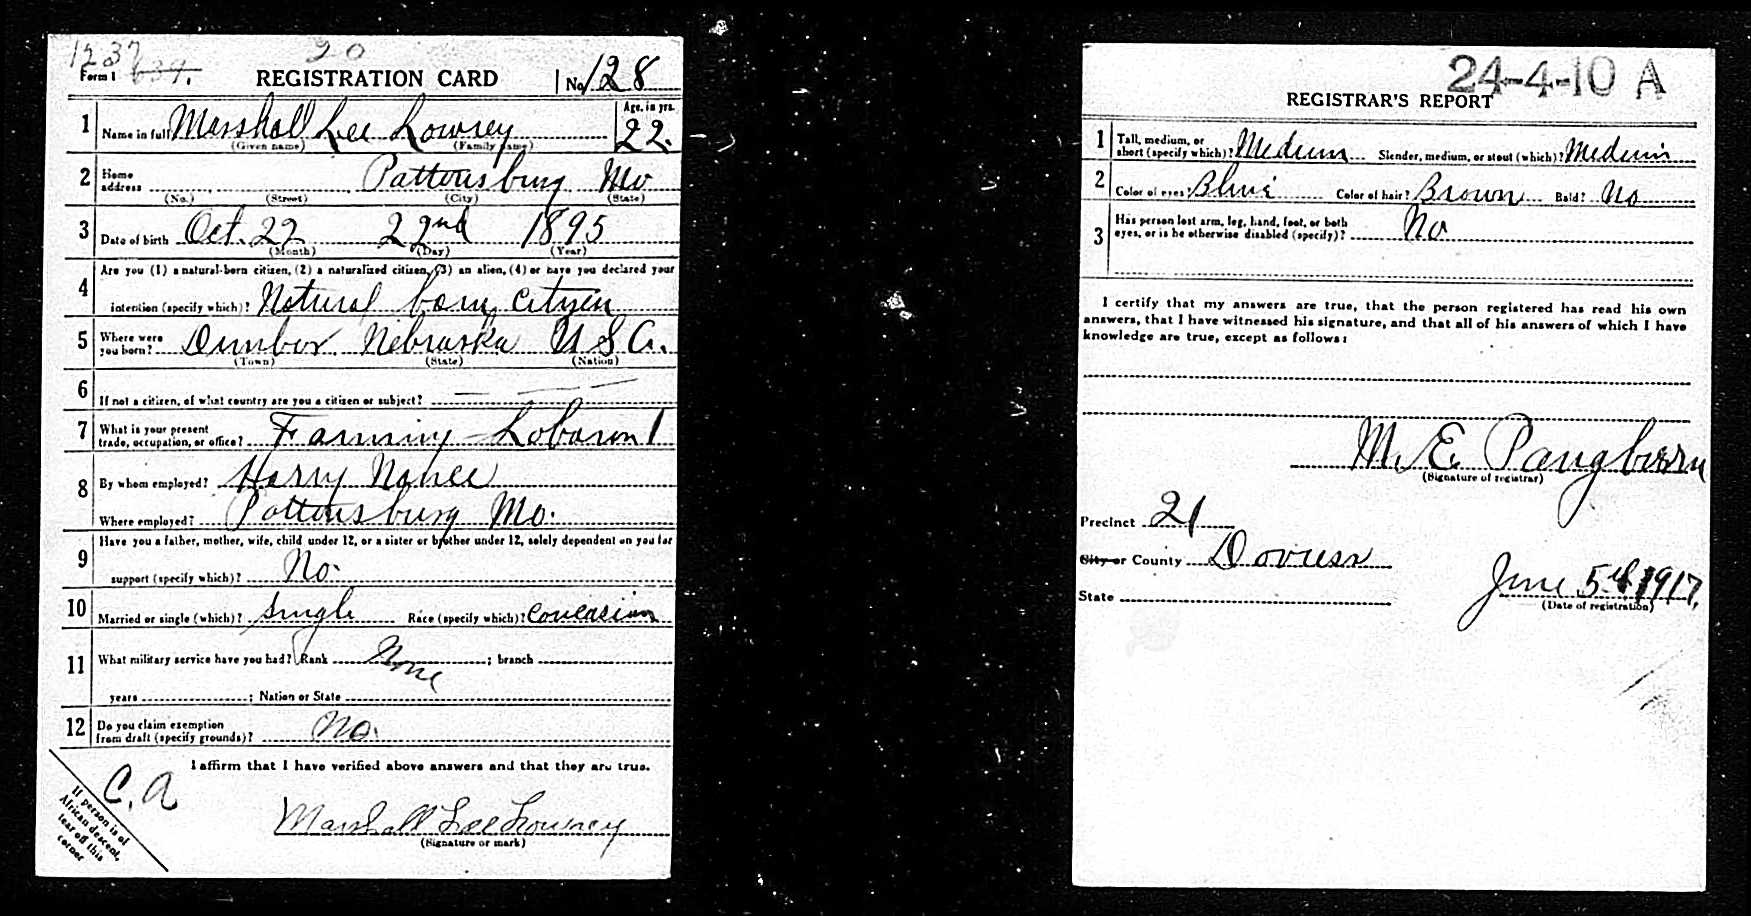 1237 20
Form 1 639. REGISTRATION CARD No. 128
1 Name in full Marshall Lee Lowrey Age, in yrs. 22.
(Given name) (Family name)
2 Home address Pattonsburg Mo
(No.) (Street) (City) (State)
3 Date of birth Oct. 22 22nd 1895
(Month) (Day) (Year)
4 Are you (1) a natural-born citizen, (2) a naturalized citizen, (3) an alien, (4) or have you declared your
intention (specify which)? Natural born citizen
5 Where were you born? Dunbar Nebraska U S A.
(Town) (State) (Nation)
6 If not a citizen, of what country are you a citizen or subject?
7 What is your present
trade, occupation, or office? Farming Laborer 1
8 By whom employed? Harry Nance
Where employed? Pattonsburg Mo.
9 Have you a father, mother, wife, child under 12, or a sister or brother under 12, solely dependent on you for
support (specify which)? No.
10 Married or single (which)? Single Race (specify which)? Caucasian
11 What military service have you had? Rank None ; branch
years ; Nation or State
12 Do you claim exemption
from draft (specify grounds)? No.
I affirm that I have verified above answers and that they are true.
C. A
Marshall Lee Lowrey
(Signature or mark)
If person is of
African descent,
tear off this
corner
24-4-10 A
REGISTRAR'S REPORT
1 Tall, medium, or
short (specify which)? Medium Slender, medium, or stout (which)? Medium
2 Color of eyes? Blue Color of hair? Brown Bald? No
3 Has person lost arm, leg, hand, foot, or both
eyes, or is he otherwise disabled (specify)? No
I certify that my answers are true, that the person registered has read his own
answers, that I have witnessed his signature, and that all of his answers of which I have
knowledge are true, except as follows:
M. E. Pangburn
(Signature of registrar)
Precinct 21
City or County Daviess
State
June 5th 1917.
(Date of registration)